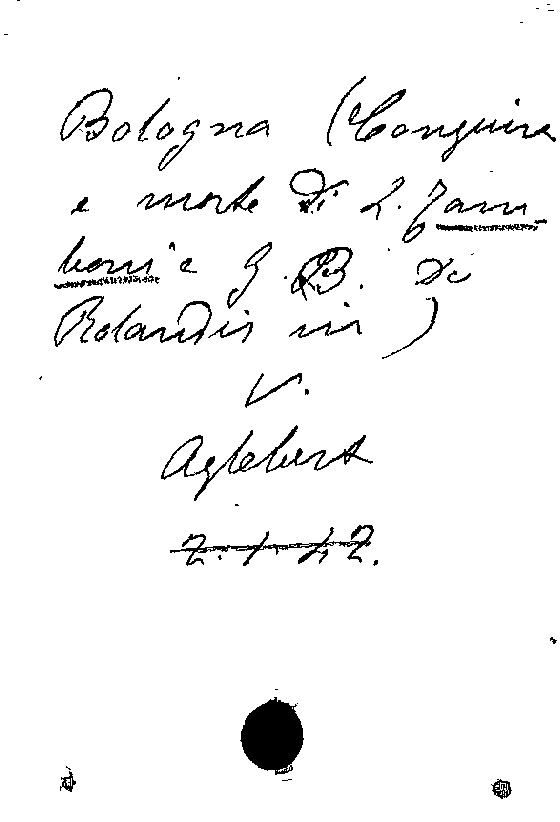 Bologna (Congiura
e morte di L. Zam-
boni e G. B. De
Rolandis in)
V.
Aglebert
Z. 1. 42.